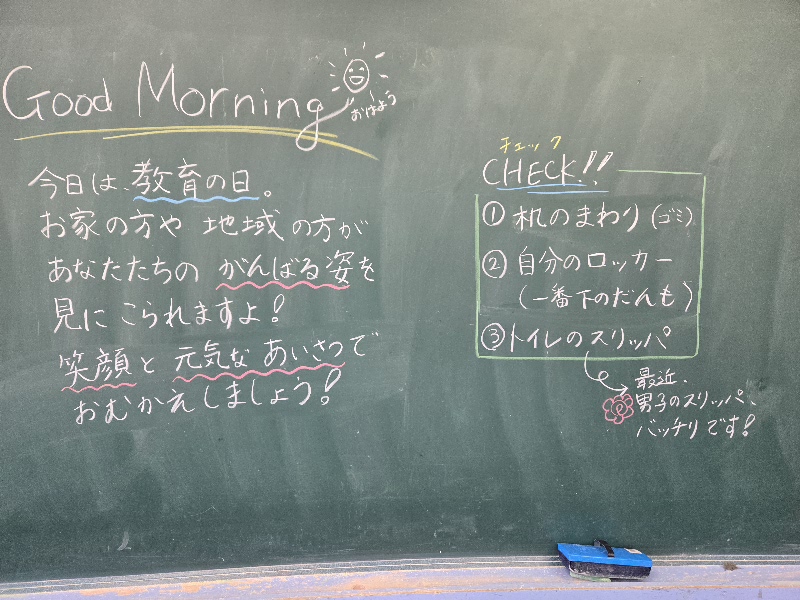 Good Morning
おはよう
今日は、教育の日。
お家の方や 地域の方が
あなたたちの がんばる姿を
見にこられますよ!
笑顔と 元気な あいさつで
おむかえしましょう!
チェック
CHECK!!
① 机のまわり(ゴミ)
② 自分のロッカー
(一番下のだんも)
③ トイレのスリッパ
最近、
男子のスリッパ、
バッチリです!